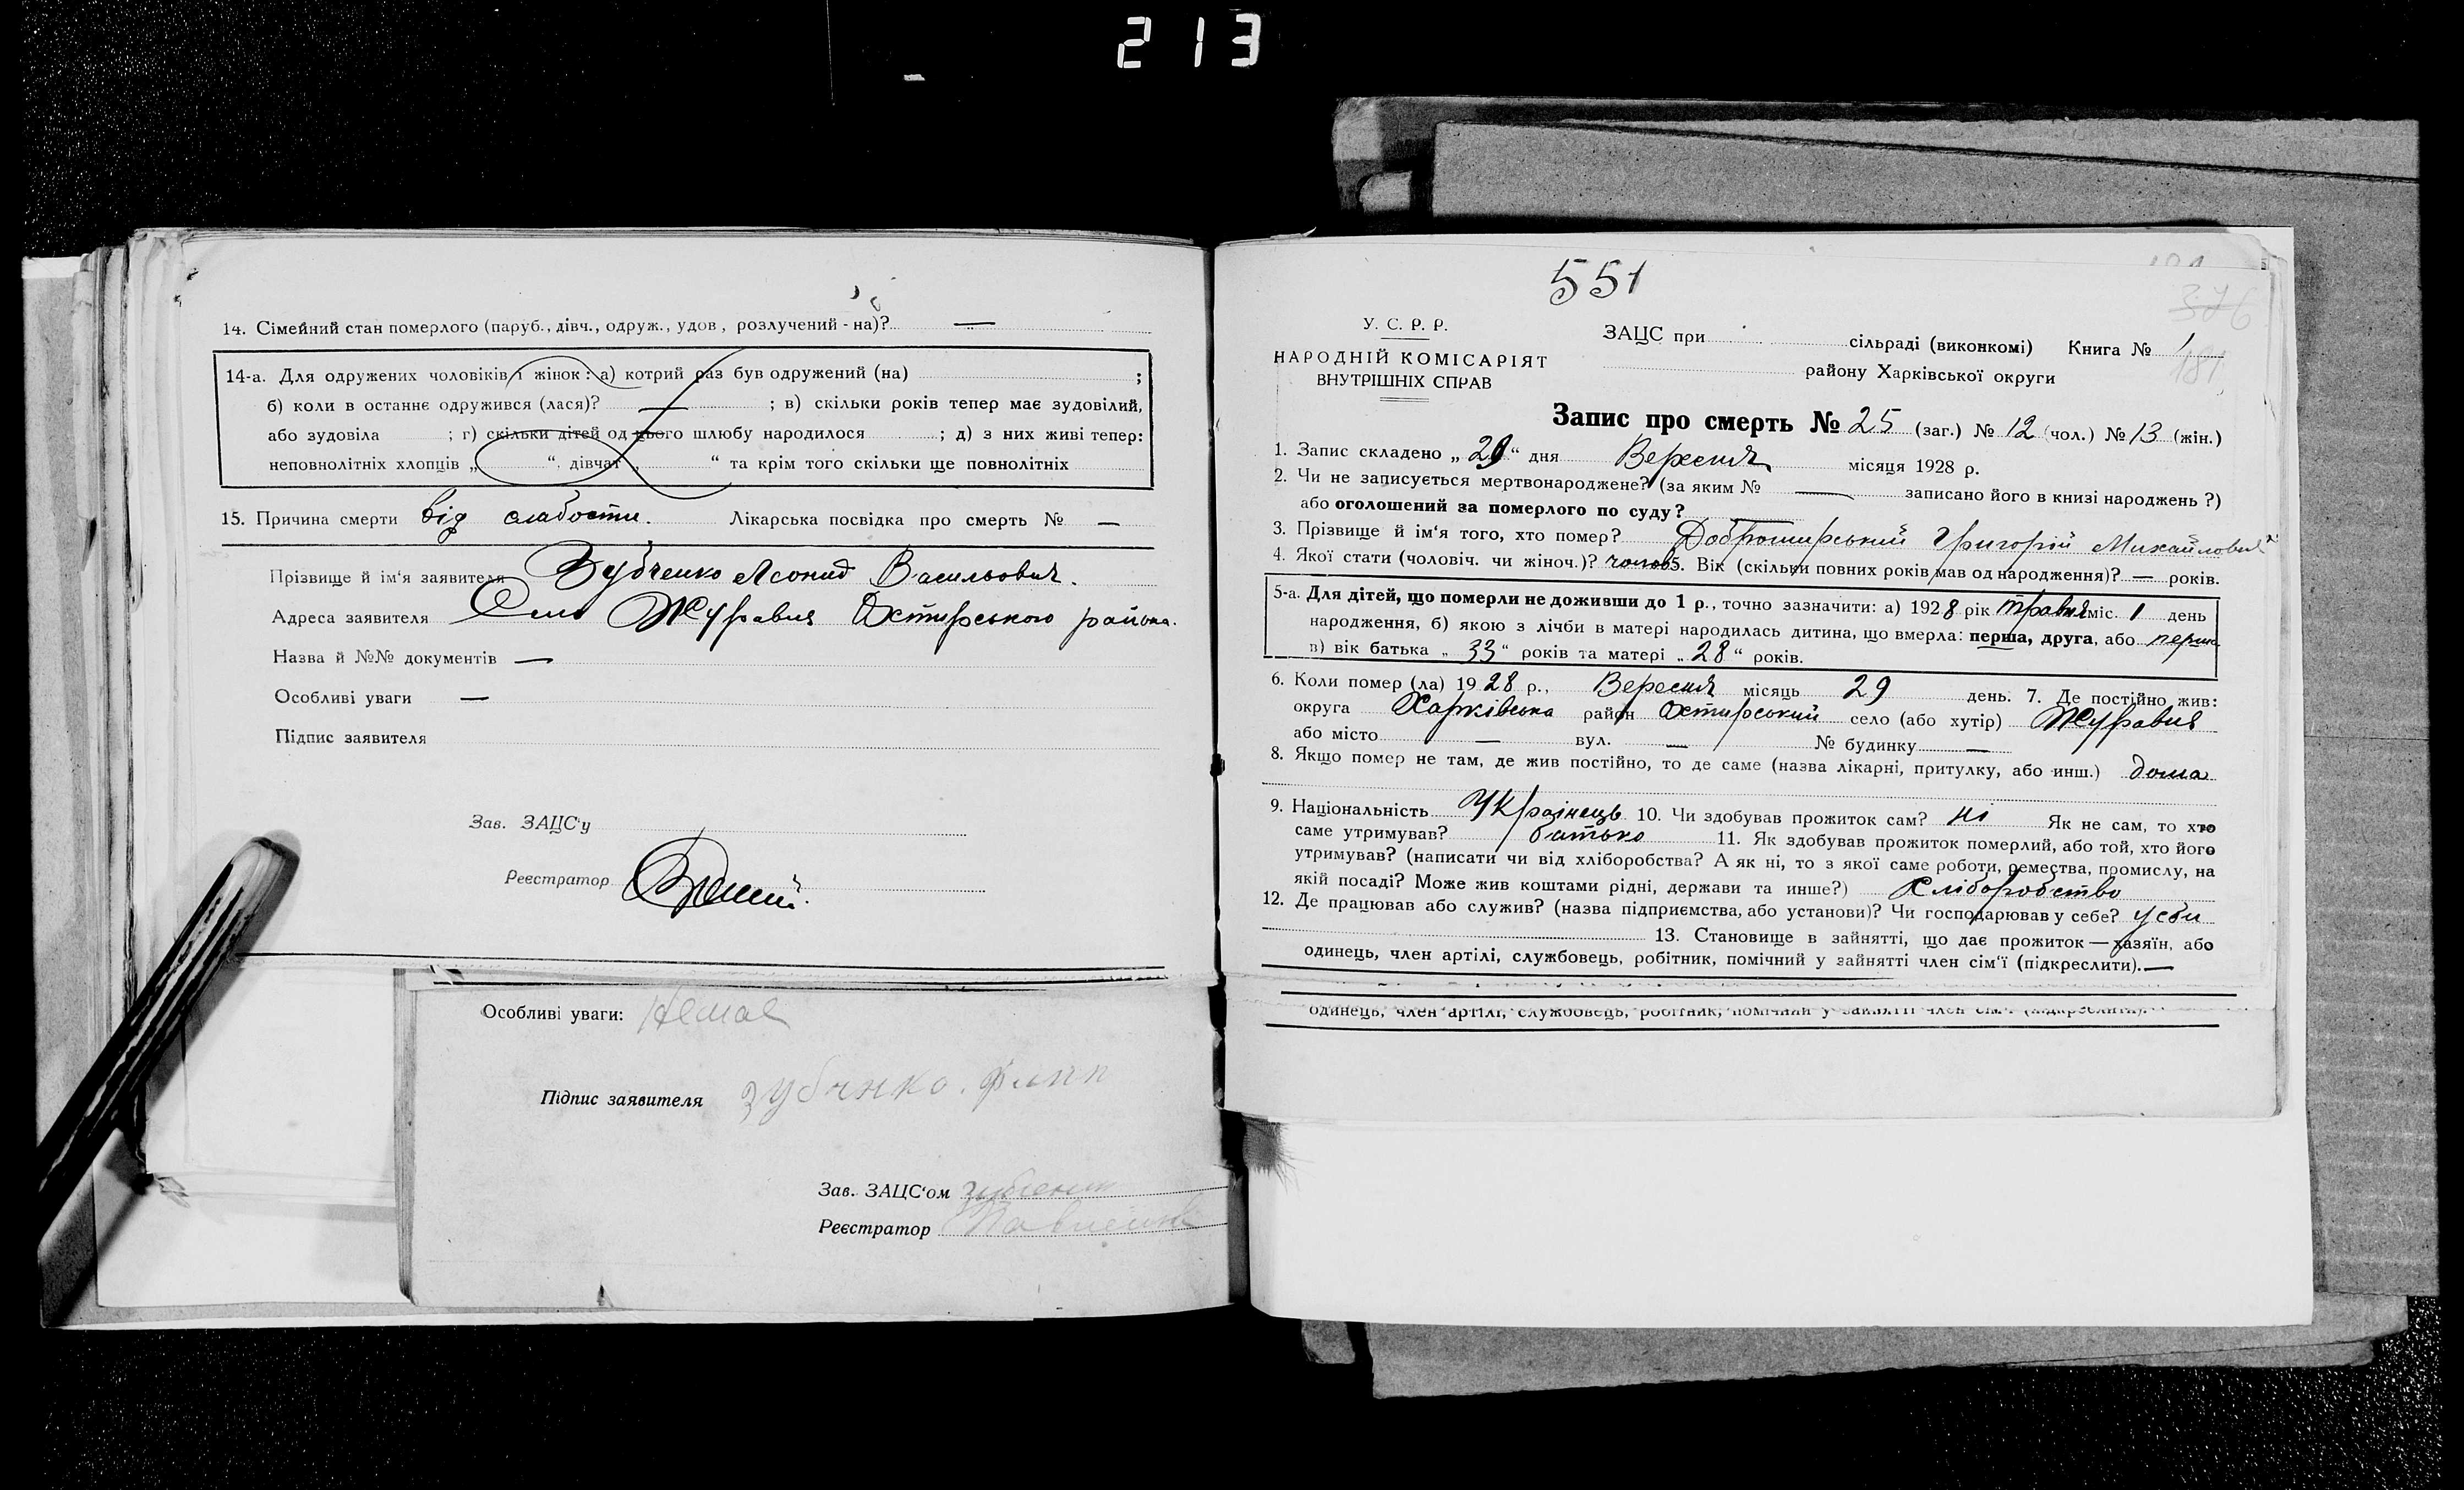 213
14. Сімейний стан померлого (паруб., дівч., одруж., удов, розлучений-на)? —
14-а. Для одружених чоловіків і жінок: а) котрий раз був одружений (на) ;
б) коли в останнє одружився (лася)? — ; в) скільки років тепер має зудовілий,
або зудовіла ; г) скільки дітей од цього шлюбу народилося ; д) з них живі тепер:
неповнолітніх хлопців „ “ дівчат „ “ та крім того скільки ще повнолітніх
15. Причина смерти від слабости. Лікарська посвідка про смерть № —
Прізвище й ім'я заявителя Зубченко Леонид Васильович.
Адреса заявителя Село Журавня Охтирського района.
Назва й №№ документів —
Особливі уваги —
Підпис заявителя
Зав. ЗАЦС'у
Реєстратор
Особливі уваги: Немає
Підпис заявителя
Зав. ЗАЦС'ом
Реєстратор
551
376
181
У. С. Р. Р.
НАРОДНІЙ КОМІСАРІЯТ
ВНУТРІШНІХ СПРАВ
ЗАЦС при сільраді (виконкомі) Книга № 1
району Харківської округи
Запис про смерть № 25 (заг.) № 12 (чол.) № 13 (жін.)
1. Запис складено „29“ дня Вересня місяця 1928 р.
2. Чи не записується мертвонароджене? (за яким № — записано його в книзі народжень?)
або оголошений за померлого по суду? —
3. Прізвище й ім'я того, хто помер? Григорій Михайлович
4. Якої стати (чоловіч. чи жіноч.)? чолов 5. Вік (скільки повних років мав од народження)? — років.
5-а. Для дітей, що померли не доживши до 1 р., точно зазначити: а) 1928 рік травня міс. 1 день
народження, б) якою з лічби в матері народилась дитина, що вмерла: перша, друга, або перша
в) вік батька „33“ років та матері „28“ років.
6. Коли помер (ла) 1928 р., Вересня місяць 29 день. 7. Де постійно жив:
округа Харківська район Охтирський село (або хутір) Журавня
або місто — вул. — № будинку —
8. Якщо помер не там, де жив постійно, то де саме (назва лікарні, притулку, або инш.) дома
9. Національність Українець 10. Чи здобував прожиток сам? ні Як не сам, то хто
саме утримував? батько 11. Як здобував прожиток померлий, або той, хто його
утримував? (написати чи від хліборобства? А як ні, то з якої саме роботи, ремества, промислу, на
якій посаді? Може жив коштами рідні, держави та инше?) хліборобство
12. Де працював або служив? (назва підприємства, або установи)? Чи господарював у себе? у себи
13. Становище в зайнятті, що дає прожиток — хазяїн, або
одинець, член артілі, службовець, робітник, помічний у зайнятті член сім'ї (підкреслити). —
одинець, член артілі, службовець, робітник, помічний у зайнятті член сім'ї (підкреслити).